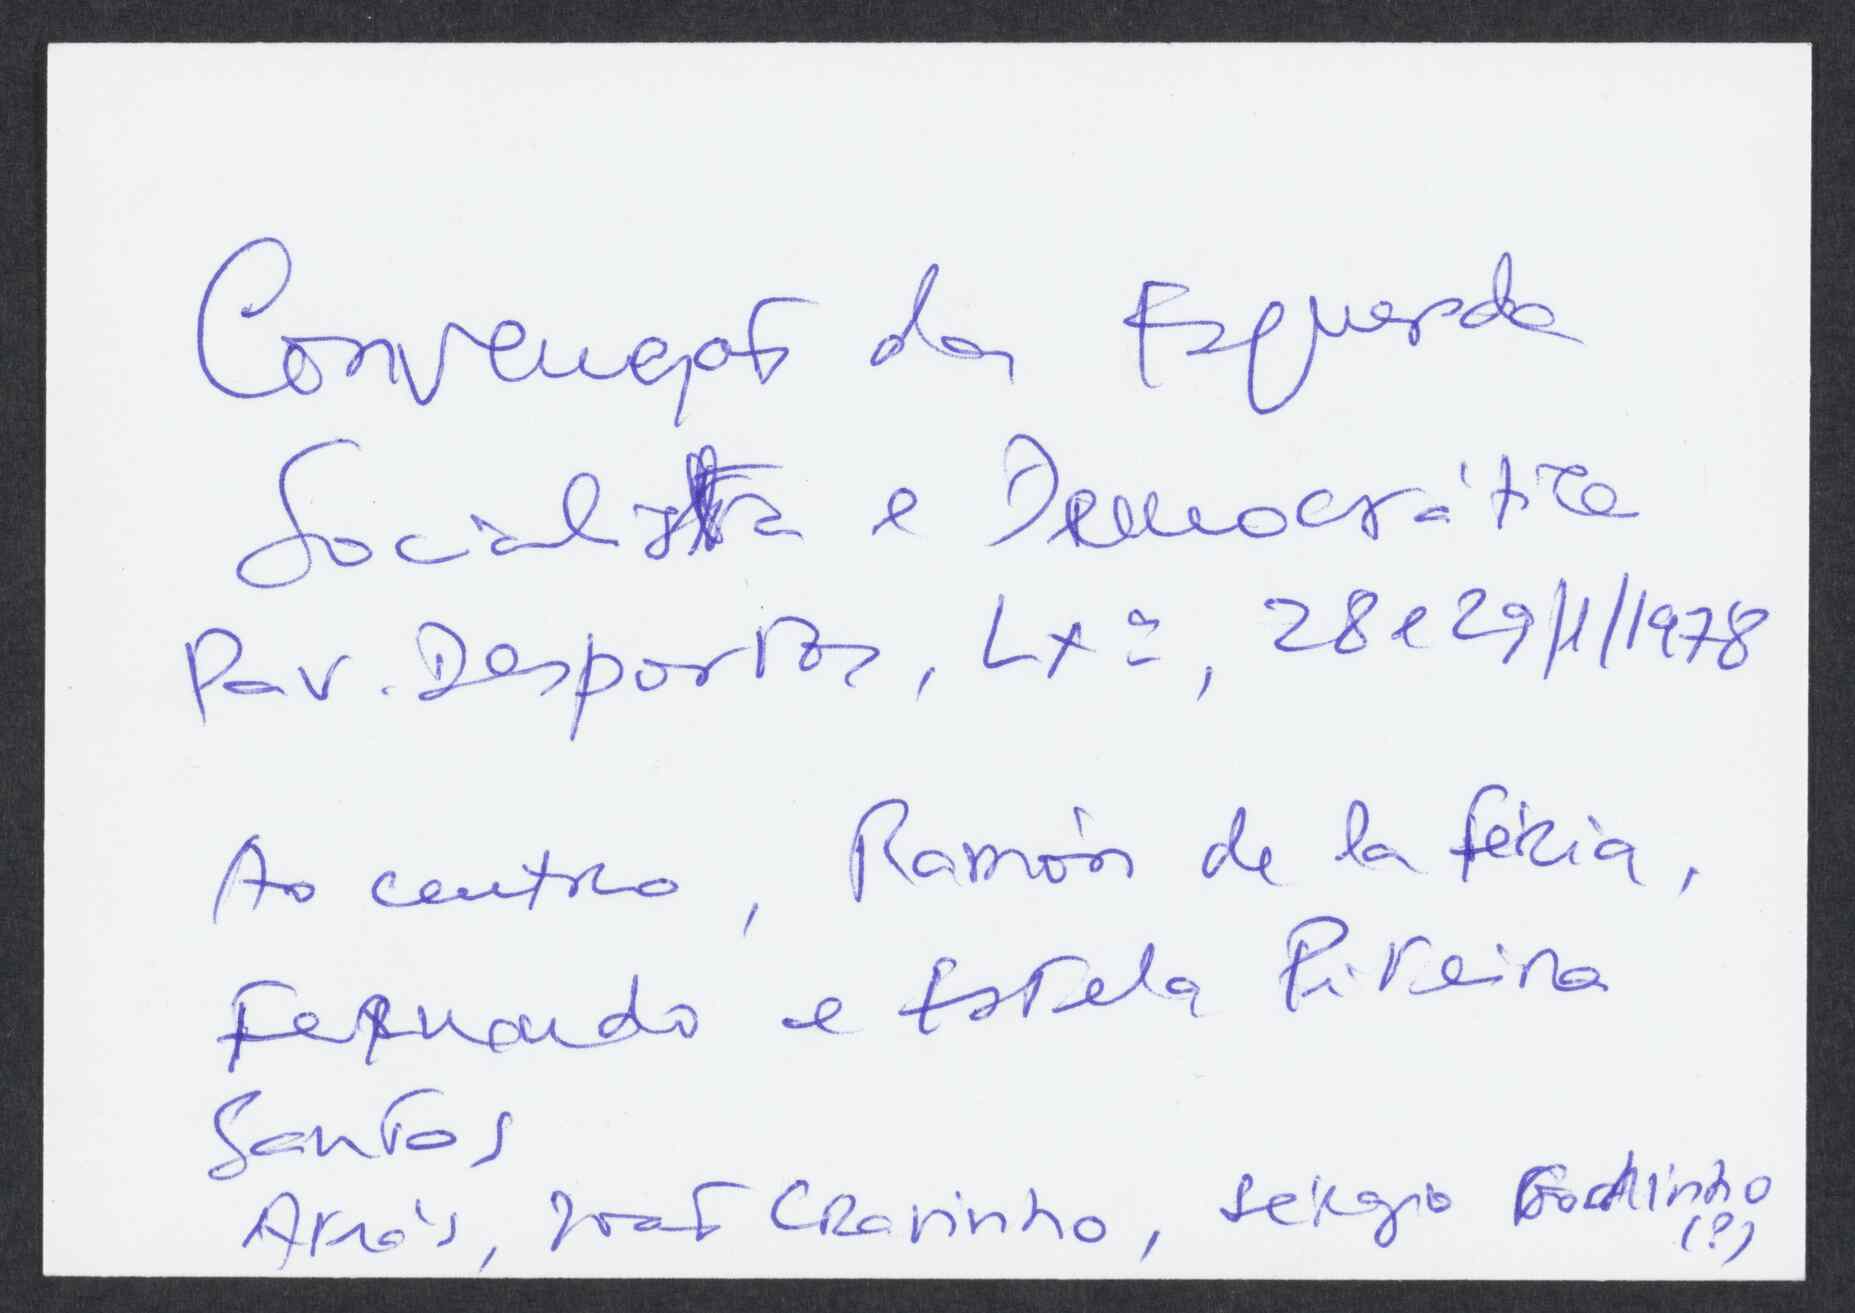 Convenção da Esquerda
Socialista e Democrática
Pav. Desportos, Lxª, 28 e 29/1/1978
Ao centro, Ramón de la Féria,
Fernando e Estela Piteira
Santos
Atrás, João Cravinho, Sérgio Godinho
(?)